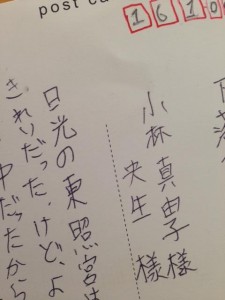 post ca
1610
小林 真由子 様
央生 様
日光の東照宮は
きれいだった。けど、よ
中だったから